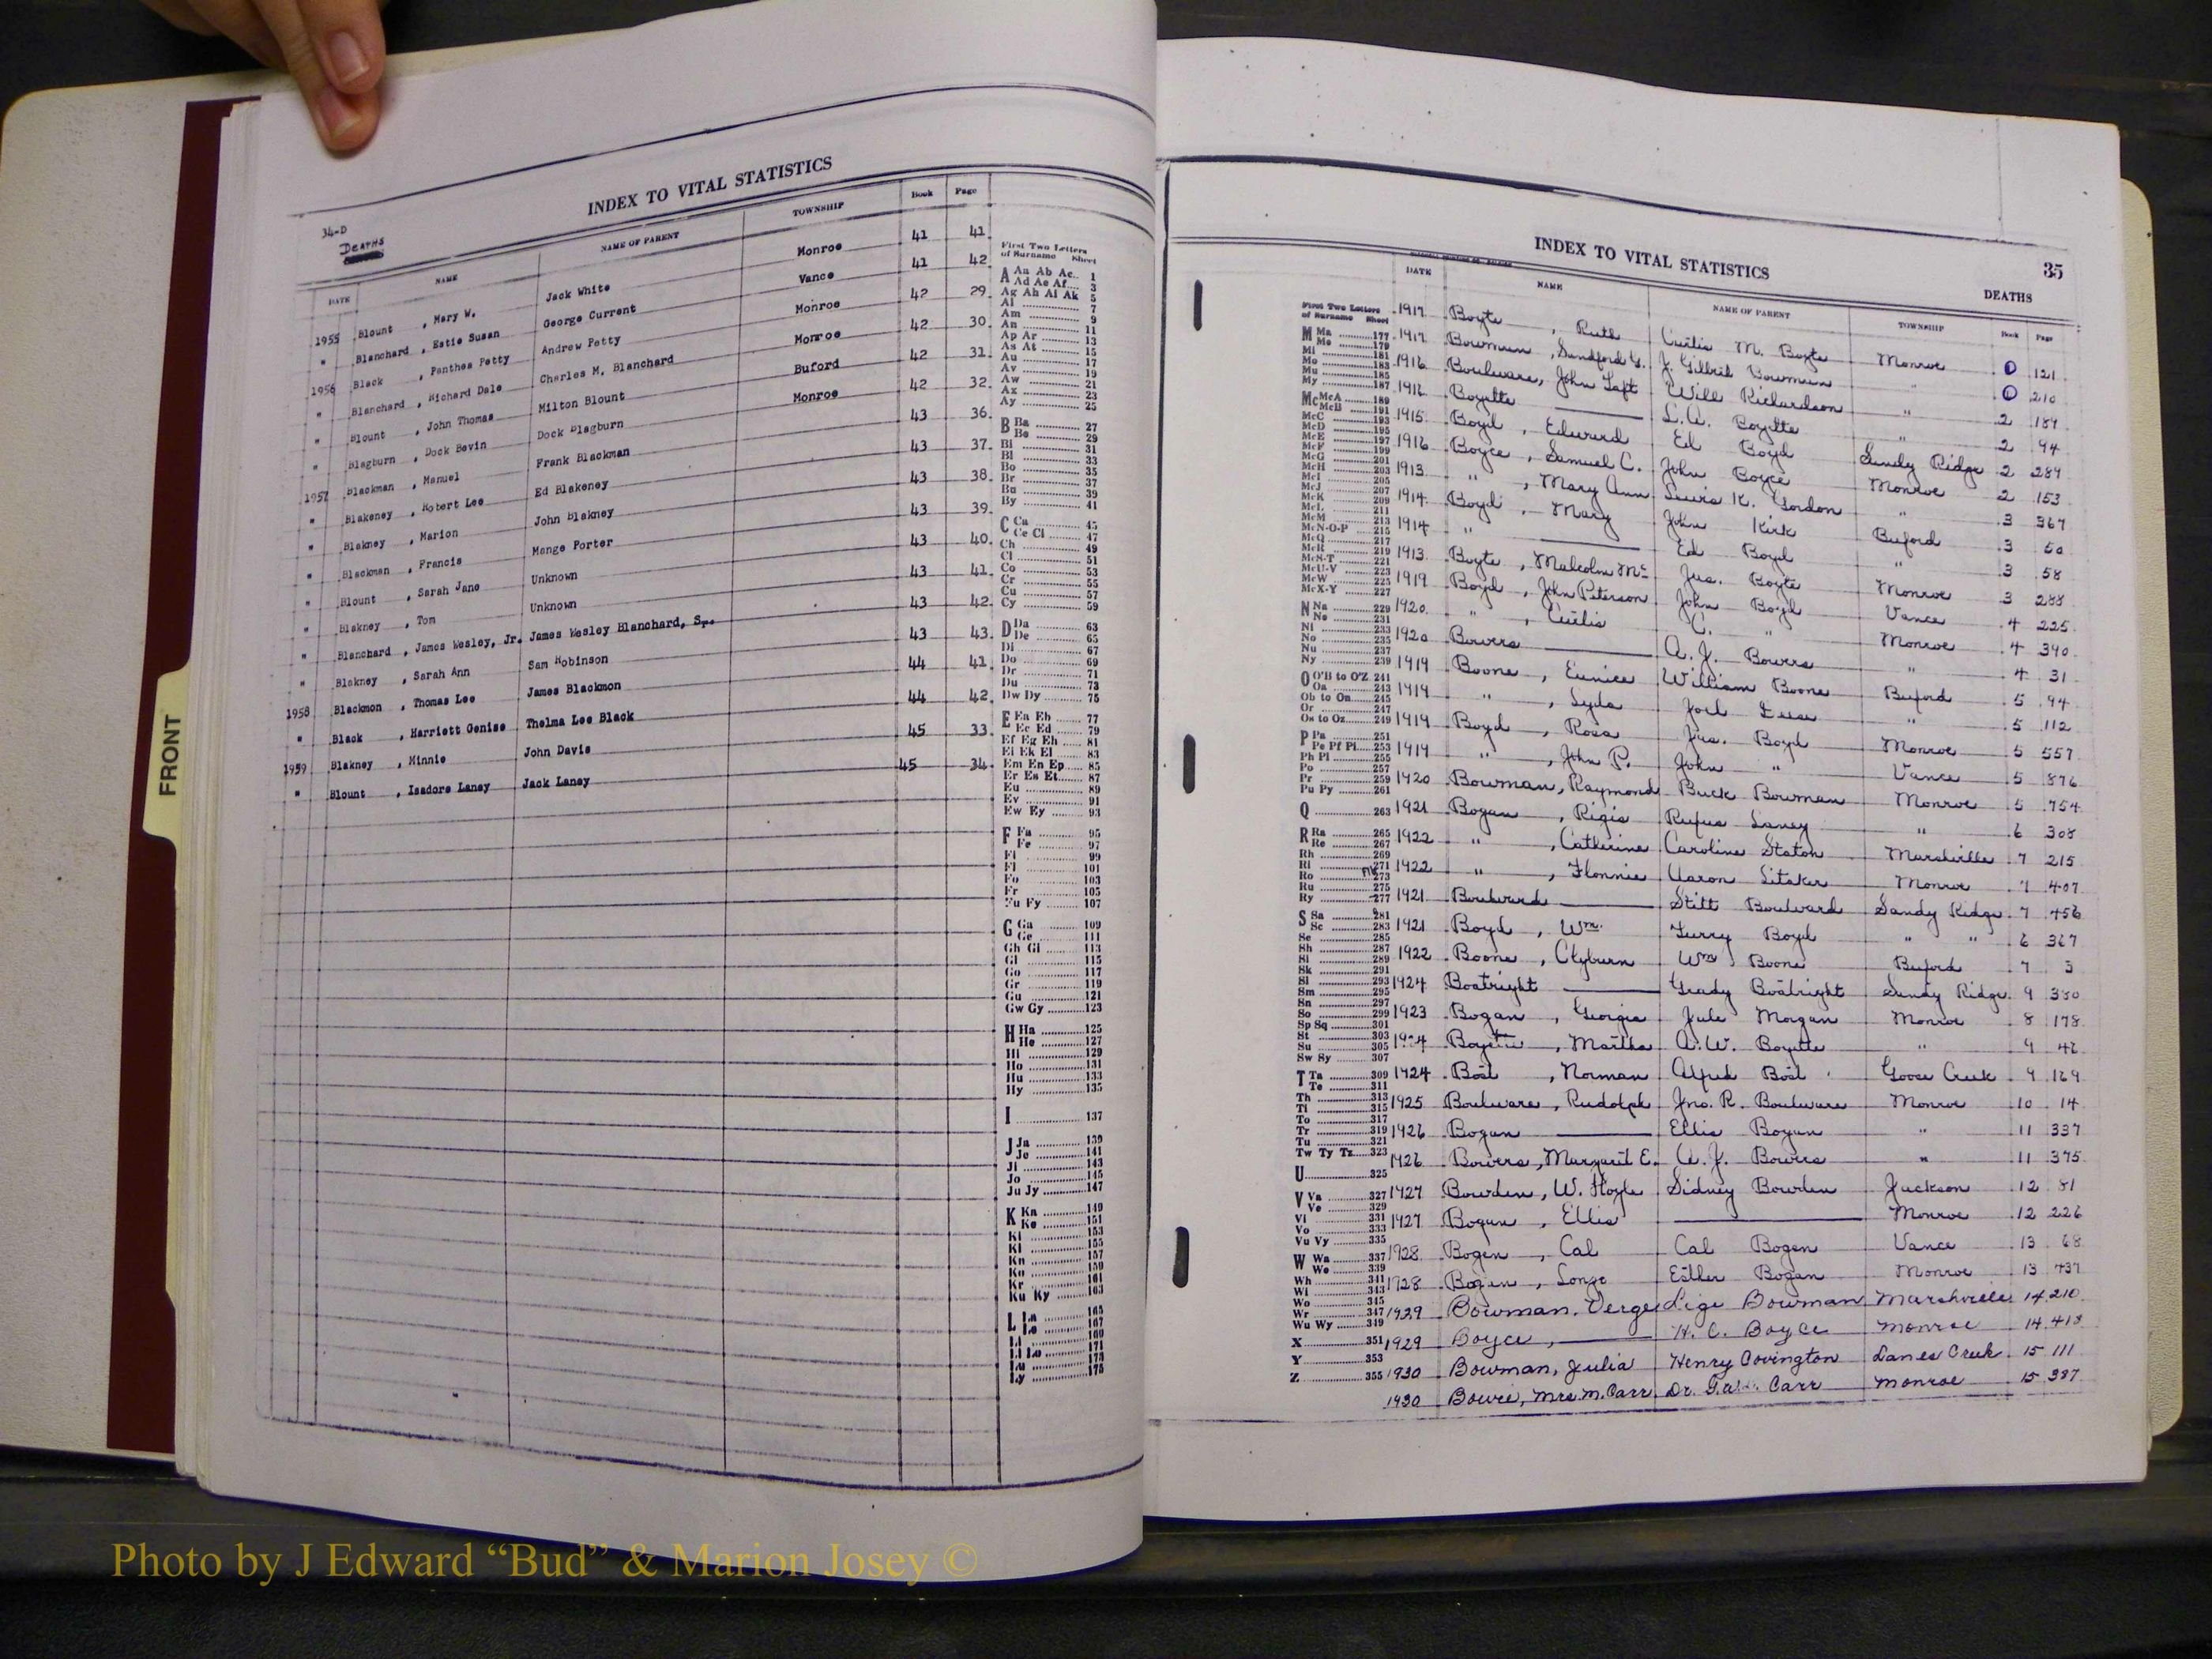 34-D
Deaths
INDEX TO VITAL STATISTICS
DATE NAME NAME OF PARENT TOWNSHIP Book Page
1955 Blount , Mary W. Jack White Monroe 41 41
" Blanchard , Estie Susan George Current Vance 41 42
1956 Black , Panthea Petty Andrew Petty Monroe 42 29
" Blanchard , Richard Dale Charles M. Blanchard Monroe 42 30
" Blount , John Thomas Milton Blount Buford 42 31
" Blagburn , Dock Bevin Dock Blagburn Monroe 42 32
1957 Blackman , Manuel Frank Blackman 43 36
" Blakeney , Robert Lee Ed Blakeney 43 37
" Blakney , Marion John Blakney 43 38
" Blackman , Francis Mange Porter 43 39
" Blount , Sarah Jane Unknown 43 40
" Blakney , Tom Unknown 43 41
" Blanchard , James Wesley, Jr. James Wesley Blanchard, Sr. 43 42
" Blakney , Sarah Ann Sam Robinson 43 43
1958 Blackmon , Thomas Lee James Blackmon 44 41
" Black , Harriett Genise Thelma Lee Black 44 42
1959 Blakney , Minnie John Davis 45 33
" Blount , Isadore Laney Jack Laney 45 34
First Two Letters
of Surname Sheet
A Aa Ab Ac 1
Ad Ae Af 3
Ag Ah Ai Ak 5
Al 7
Am 9
An 11
Ap Ar 13
As At 15
Au 17
Av 19
Aw 21
Ax 23
Ay 25
B Ba 27
Be 29
Bi 31
Bl 33
Bo 35
Br 37
Bu 39
By 41
C Ca 45
Ce Ci 47
Ch 49
Cl 51
Co 53
Cr 55
Cu 57
Cy 59
D Da 63
De 65
Di 67
Do 69
Dr 71
Du 73
Dw Dy 75
E Ea Eb 77
Ec Ed 79
Ef Eg Eh 81
Ei Ek El 83
Em En Ep 85
Er Es Et 87
Eu 89
Ev 91
Ew Ey 93
F Fa 95
Fe 97
Fi 99
Fl 101
Fo 103
Fr 105
Fu Fy 107
G Ga 109
Ge 111
Gh Gi 113
Gl 115
Go 117
Gr 119
Gu 121
Gw Gy 123
H Ha 125
He 127
Hi 129
Ho 131
Hu 133
Hy 135
I 137
J Ja 139
Je 141
Ji 143
Jo 145
Ju Jy 147
K Ka 149
Ke 151
Ki 153
Kl 155
Kn 157
Ko 159
Kr 161
Ku Ky 163
L La 165
Le 167
Li 169
Ll Lo 171
Lu 173
Ly 175
FRONT
INDEX TO VITAL STATISTICS
35
DEATHS
DATE NAME NAME OF PARENT TOWNSHIP Book Page
1917 Boyte , Ruth Curtis M. Boyte Monroe 0 121
1917 Bowman , Sandford G. J. Gilbril Bowman " 0 210
1916 Boulware, John Taft Will Richardson " 2 189
1916 Boyette L. A. Boyette " 2 94
1915 Boyd , Edward Ed Boyd Sandy Ridge 2 289
1916 Boyce , Samuel C. John Boyce Monroe 2 153
1913 " , Mary Ann Lewis K. Gordon " 3 367
1914 Boyd , Mary John Kirk Buford 3 50
1914 " Ed Boyd " 3 58
1913 Boyte , Malcolm Mc Jas. Boyte Monroe 3 288
1919 Boyd , John Peterson John Boyd Vance 4 225
1920 " , Curtis C. " Monroe 4 340
1920 Bowers A. J. Bowers " 4 31
1919 Boone , Eunice William Boone Buford 5 94
1919 " , Lyda Joel " 5 112
1919 Boyd , Rosa Jas. Boyd Monroe 5 557
1919 " , John P. John " Vance 5 876
1920 Bowman, Raymond Buck Bowman Monroe 5 754
1921 Bogan , Rigis Rufus Laney " 6 308
1922 " , Catherine Caroline Staton Marshville 7 215
1922 " , Flonnie Aaron Sitaker Monroe 7 407
1921 Boulward Stitt Boulward Sandy Ridge 7 456
1921 Boyd , Wm. Furry Boyd " " 6 367
1922 Boone , Clyburn Wm. Boone Buford 7 3
1924 Boatright Grady Boatright Sandy Ridge 9 350
1923 Bogan , Georgia Jule Morgan Monroe 8 178
Boyette , Martha A. W. Boyette "
1924 Bost , Norman Alfred Bost Goose Creek 9 169
1925 Boulware , Rudolph Jno. R. Boulware Monroe 10 14
1926 Bogan Ellis Bogan " 11 337
1926 Bowers , Margaret E. A. J. Bowers " 11 375
1927 Bowden , W. Hoyle Sidney Bowden Jackson 12 81
1927 Bogan , Ellis Monroe 12 226
1928 Bogen , Cal Cal Bogen Vance 13 68
1928 Bogan , Esther Bogan Monroe 13 437
1929 Bowman, Verge Lige Bowman Marshville 14 210
1929 Boyce , H. C. Boyce Monroe 14 413
1930 Bowman, Julia Henry Covington Lanes Creek 15 111
1930 Bowie, Mrs M. Carr Dr. Carr Monroe 15 387
First Two Letters
of Surname Sheet
M Ma 177
Me 179
Mi 181
Mo 183
Mu 185
My 187
Mc McA 189
McB 191
McC 193
McD 195
McE 197
McF 199
McG 201
McH 203
McI 205
McJ 207
McK 209
McL 211
McM 213
McN-O-P 215
McQ 217
McR 219
McS-T 221
McU-V 223
McW 225
McX-Y 227
N Na 229
Ne 231
Ni 233
No 235
Nu 237
Ny 239
O O'B to O'Z 241
Oa 243
Ob to On 245
Or 247
Os to Oz 249
P Pa 251
Pe Pf Pi 253
Ph Pl 255
Po 257
Pr 259
Pu Py 261
Q 263
R Ra 265
Re 267
Rh 269
Ri 271
Ro 273
Ru 275
Ry 277
S Sa 281
Sc 283
Se 285
Sh 287
Si 289
Sk 291
Sl 293
Sm 295
Sn 297
So 299
Sp Sq 301
St 303
Su 305
Sw Sy 307
T Ta 309
Te 311
Th 313
Ti 315
To 317
Tr 319
Tu 321
Tw Ty Tz 323
U 325
V Va 327
Ve 329
Vi 331
Vo 333
Vu Vy 335
W Wa 337
We 339
Wh 341
Wi 343
Wo 345
Wr 347
Wu Wy 349
X 351
Y 353
Z 355
Photo by J Edward “Bud” & Marion Josey ©